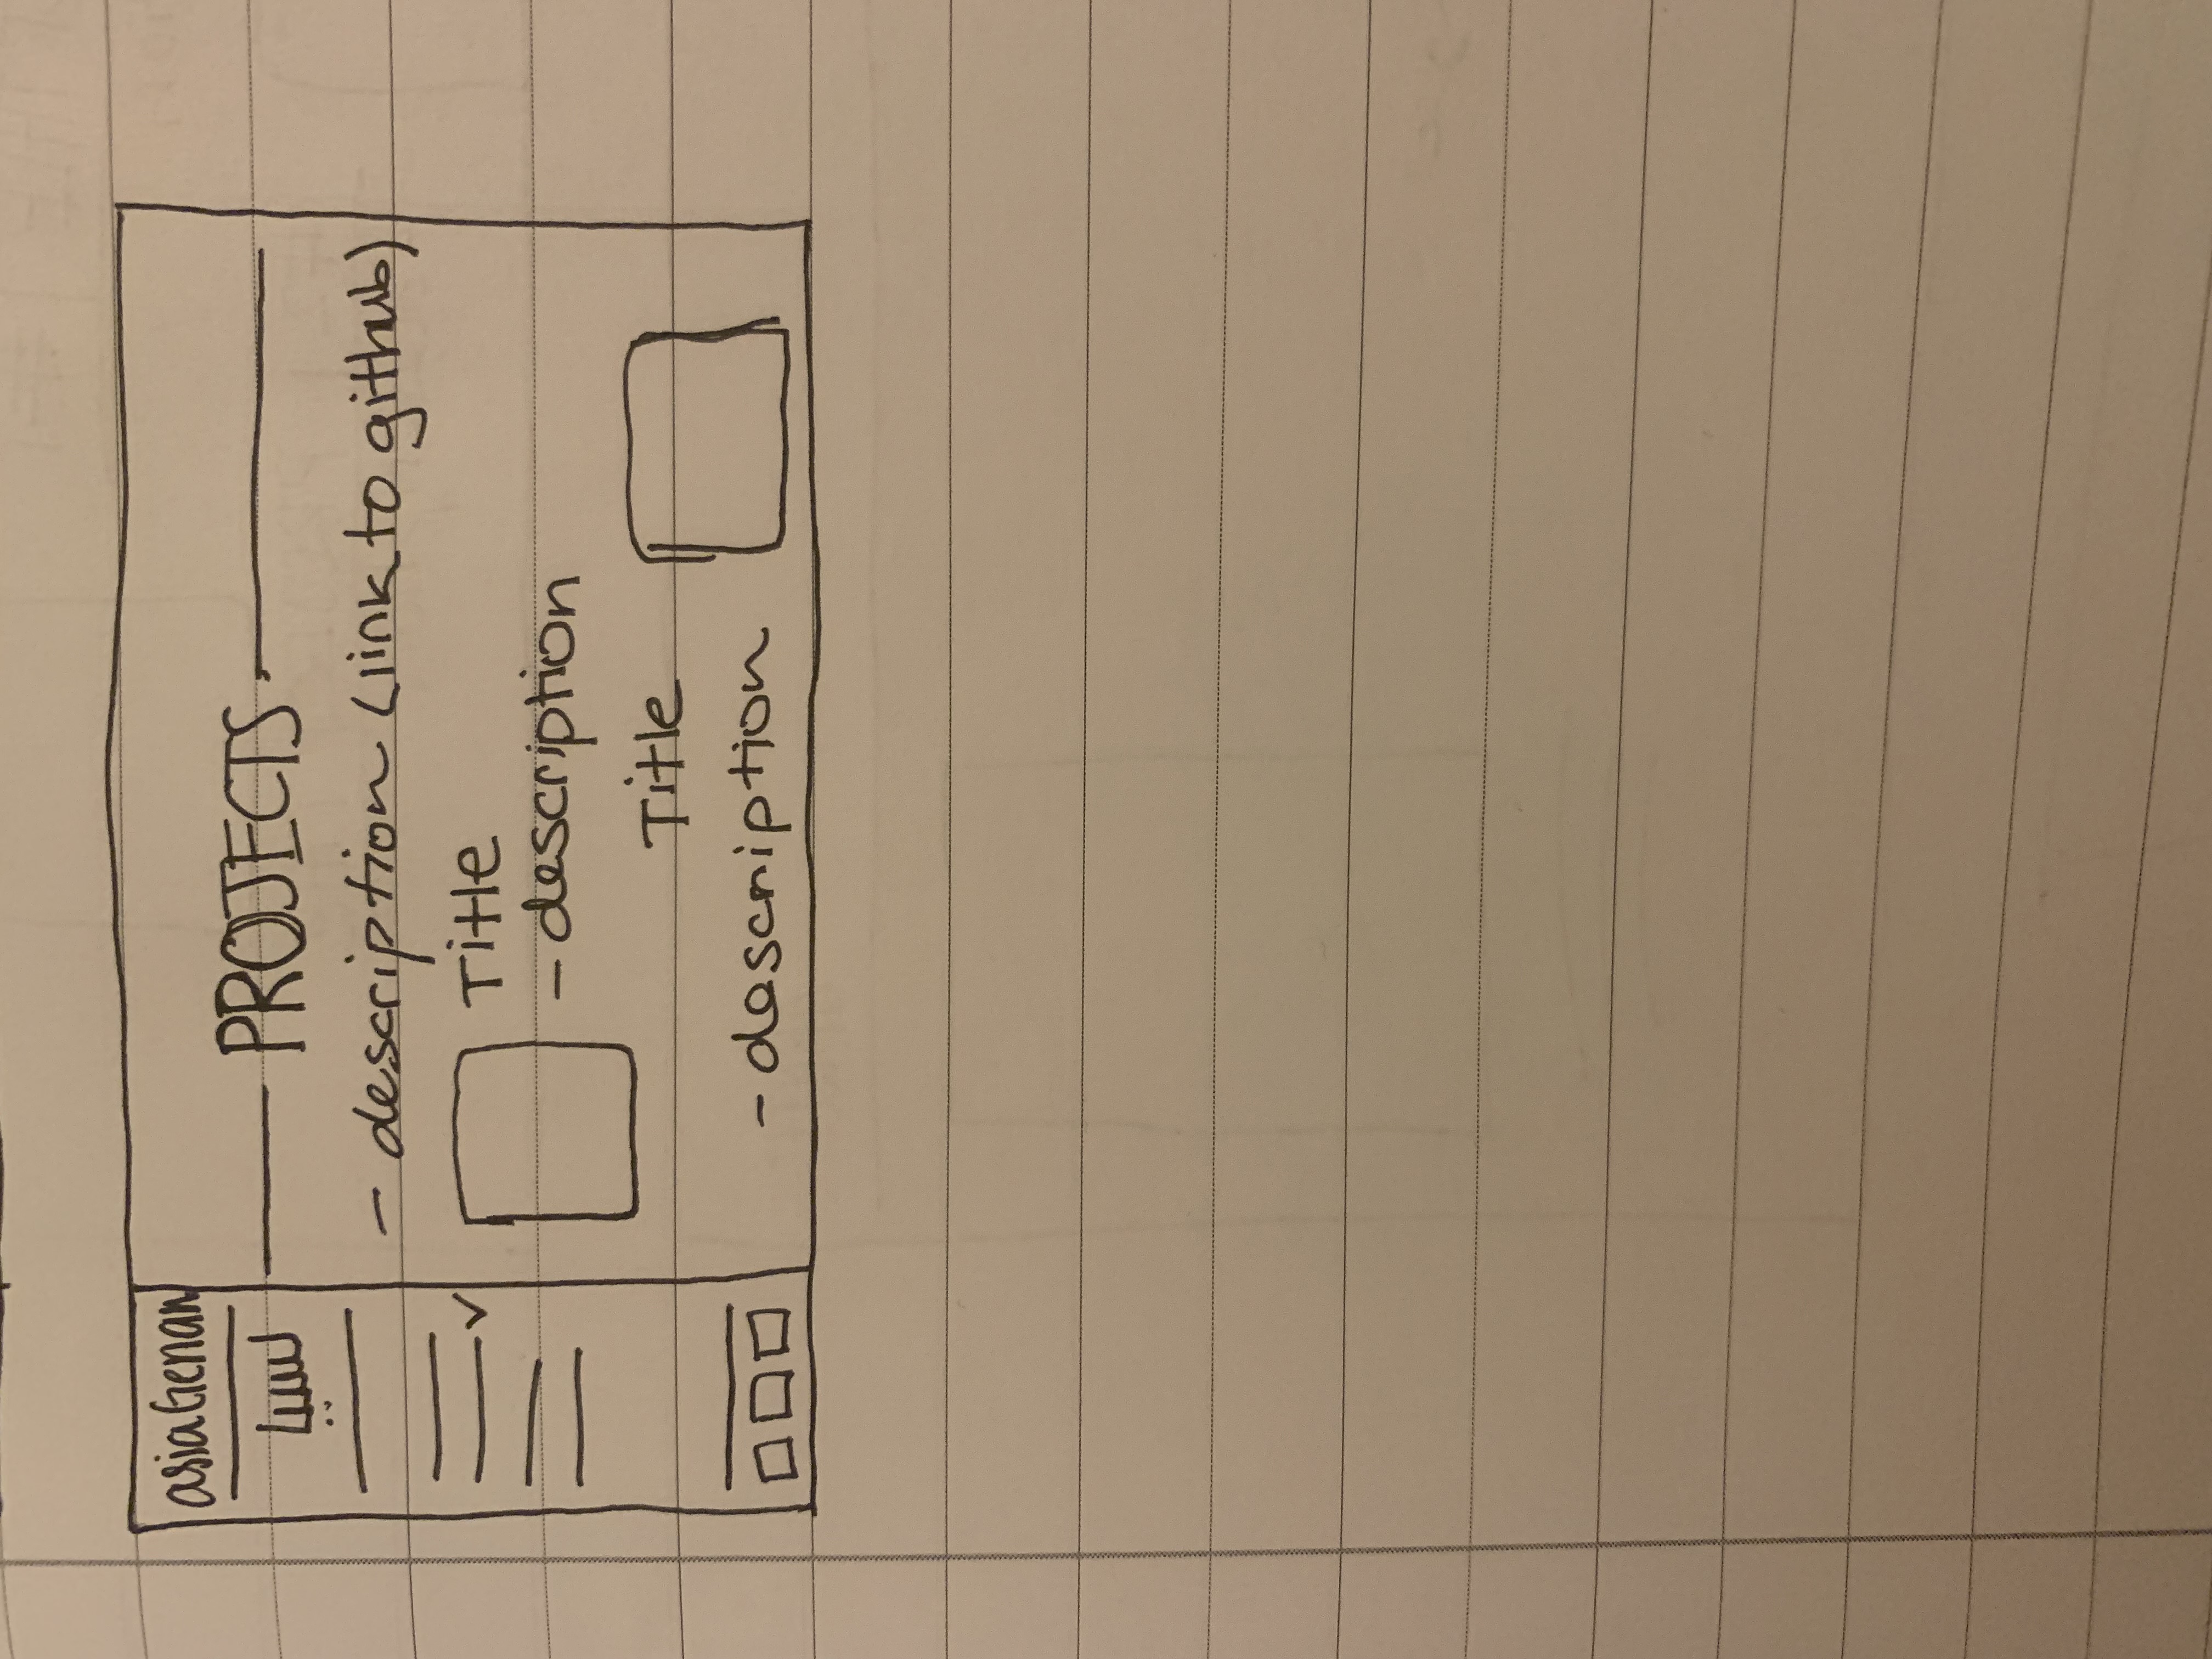 asiaGenan
PROJECTS
- description (link to github)
Title
- description
Title
- description